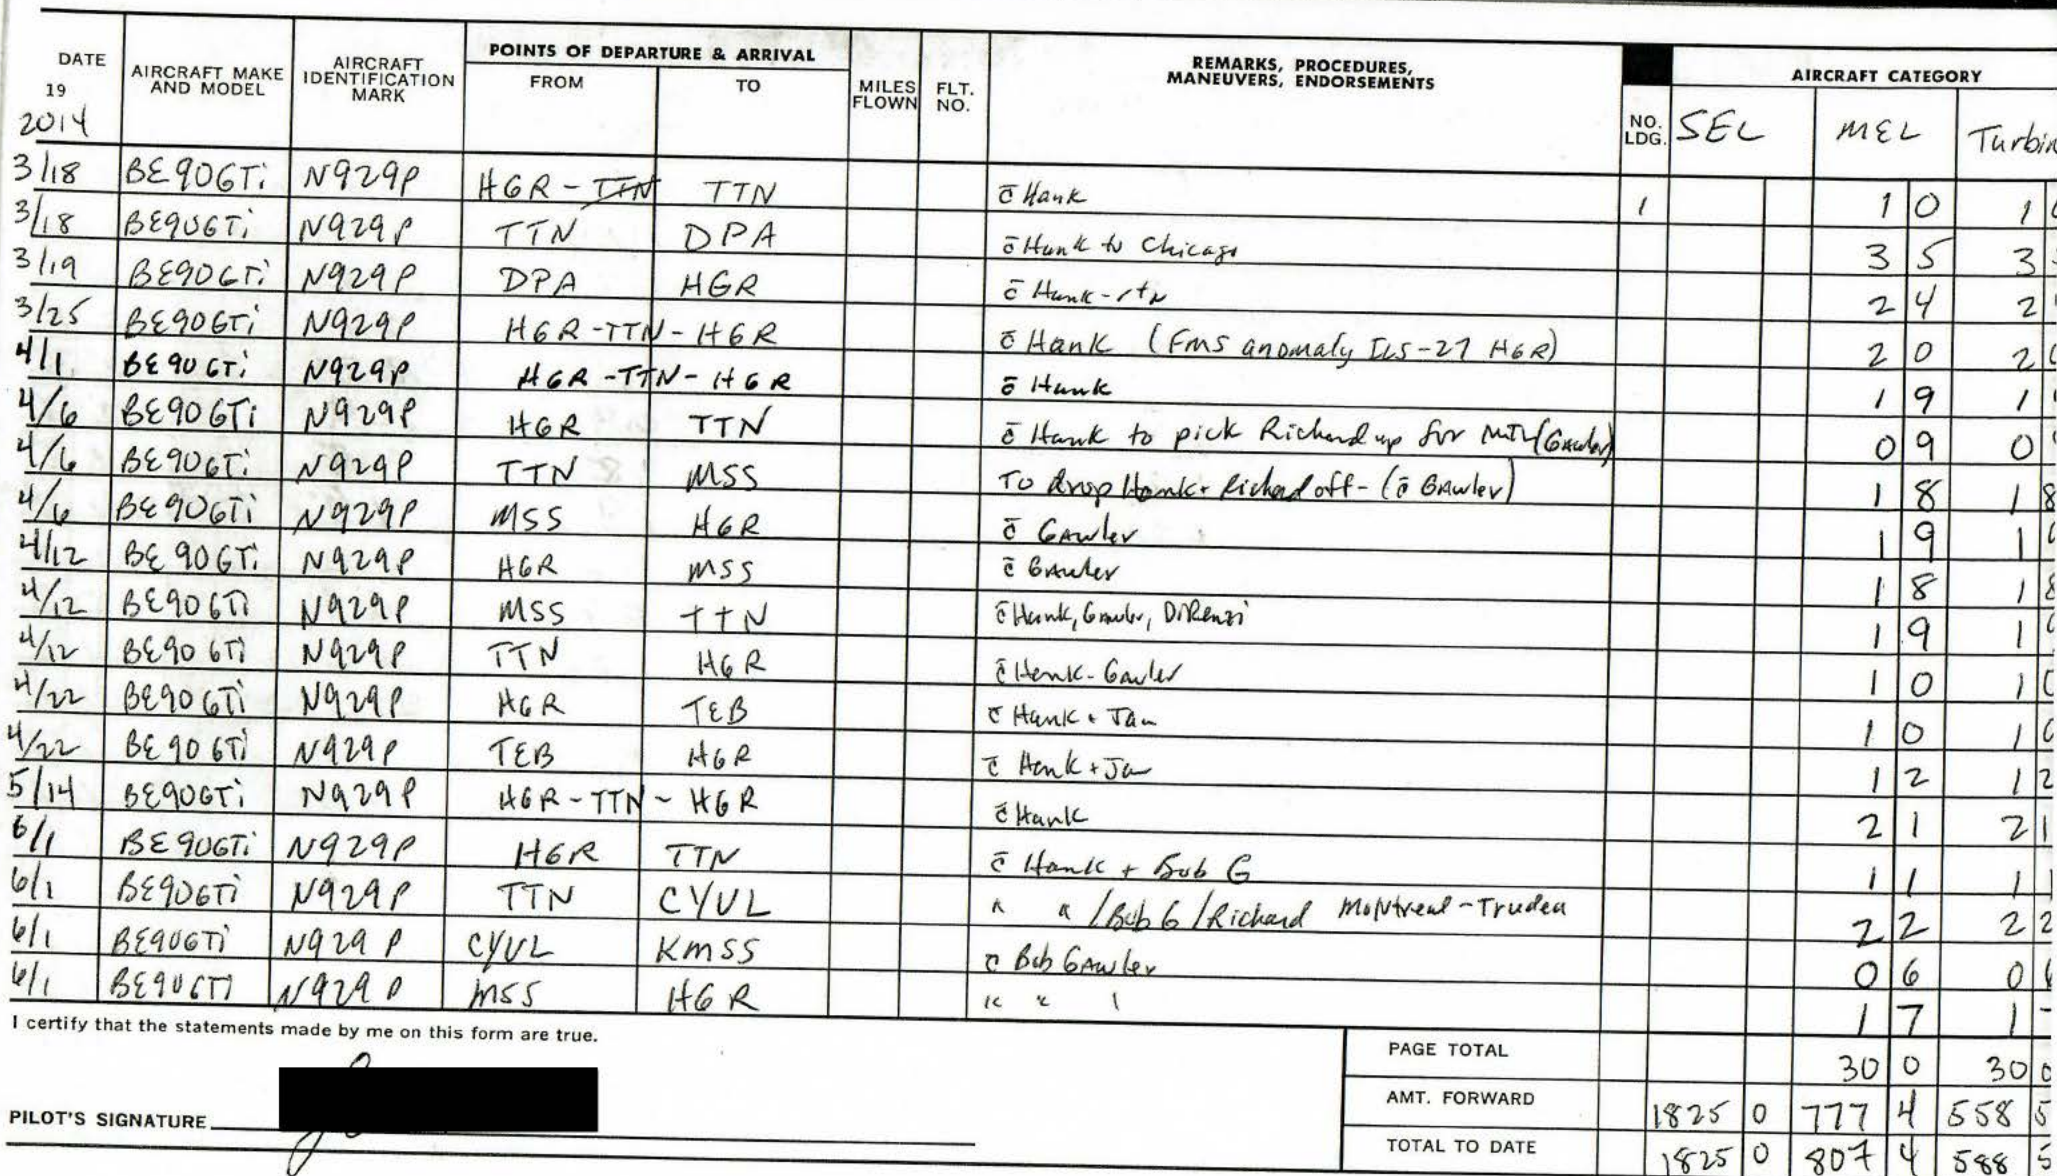 DATE AIRCRAFT MAKE AND MODEL AIRCRAFT IDENTIFICATION MARK POINTS OF DEPARTURE & ARRIVAL MILES FLOWN FLT. NO. REMARKS, PROCEDURES, MANEUVERS, ENDORSEMENTS NO. LDG. AIRCRAFT CATEGORY
19 2014 FROM TO SEL MEL Turbin
3/18 BE90GTi N929P HGR - TTN TTN c̄ Hank 1 1 0 1
3/18 BE90GTi N929P TTN DPA c̄ Hank to Chicago 3 5 3
3/19 BE90GTi N929P DPA HGR c̄ Hank - rtn 2 4 2
3/25 BE90GTi N929P HGR - TTN - HGR c̄ Hank (FMS anomaly ILS-27 HGR) 2 0 2
4/1 BE90GTi N929P HGR - TTN - HGR c̄ Hank 1 9 1
4/6 BE90GTi N929P HGR TTN c̄ Hank to pick Richard up for MTL (Gawler) 0 9 0
4/6 BE90GTi N929P TTN MSS To drop Hank + Richard off - (c̄ Gawler) 1 8 1 8
4/6 BE90GTi N929P MSS HGR c̄ Gawler 1 9 1
4/12 BE90GTi N929P HGR MSS c̄ Gawler 1 8 1 8
4/12 BE90GTi N929P MSS TTN c̄ Hank, Gawler, DiRenzi 1 9 1 9
4/12 BE90GTi N929P TTN HGR c̄ Hank - Gawler 1 0 1 0
4/22 BE90GTi N929P HGR TEB c̄ Hank + Jan 1 0 1 0
4/22 BE90GTi N929P TEB HGR c̄ Hank + Jan 1 2 1 2
5/14 BE90GTi N929P HGR - TTN - HGR c̄ Hank 2 1 2 1
6/1 BE90GTi N929P HGR TTN c̄ Hank + Bob G 1 1 1 1
6/1 BE90GTi N929P TTN CYUL " " / Bob G / Richard Montreal - Trudea 2 2 2 2
6/1 BE90GTi N929P CYUL KMSS c̄ Bob Gawler 0 6 0
6/1 BE90GTi N929P MSS HGR " " 1 7 1
I certify that the statements made by me on this form are true.
PAGE TOTAL 30 0 30 0
AMT. FORWARD 1825 0 777 4 558 5
PILOT'S SIGNATURE
TOTAL TO DATE 1825 0 807 4 588 5